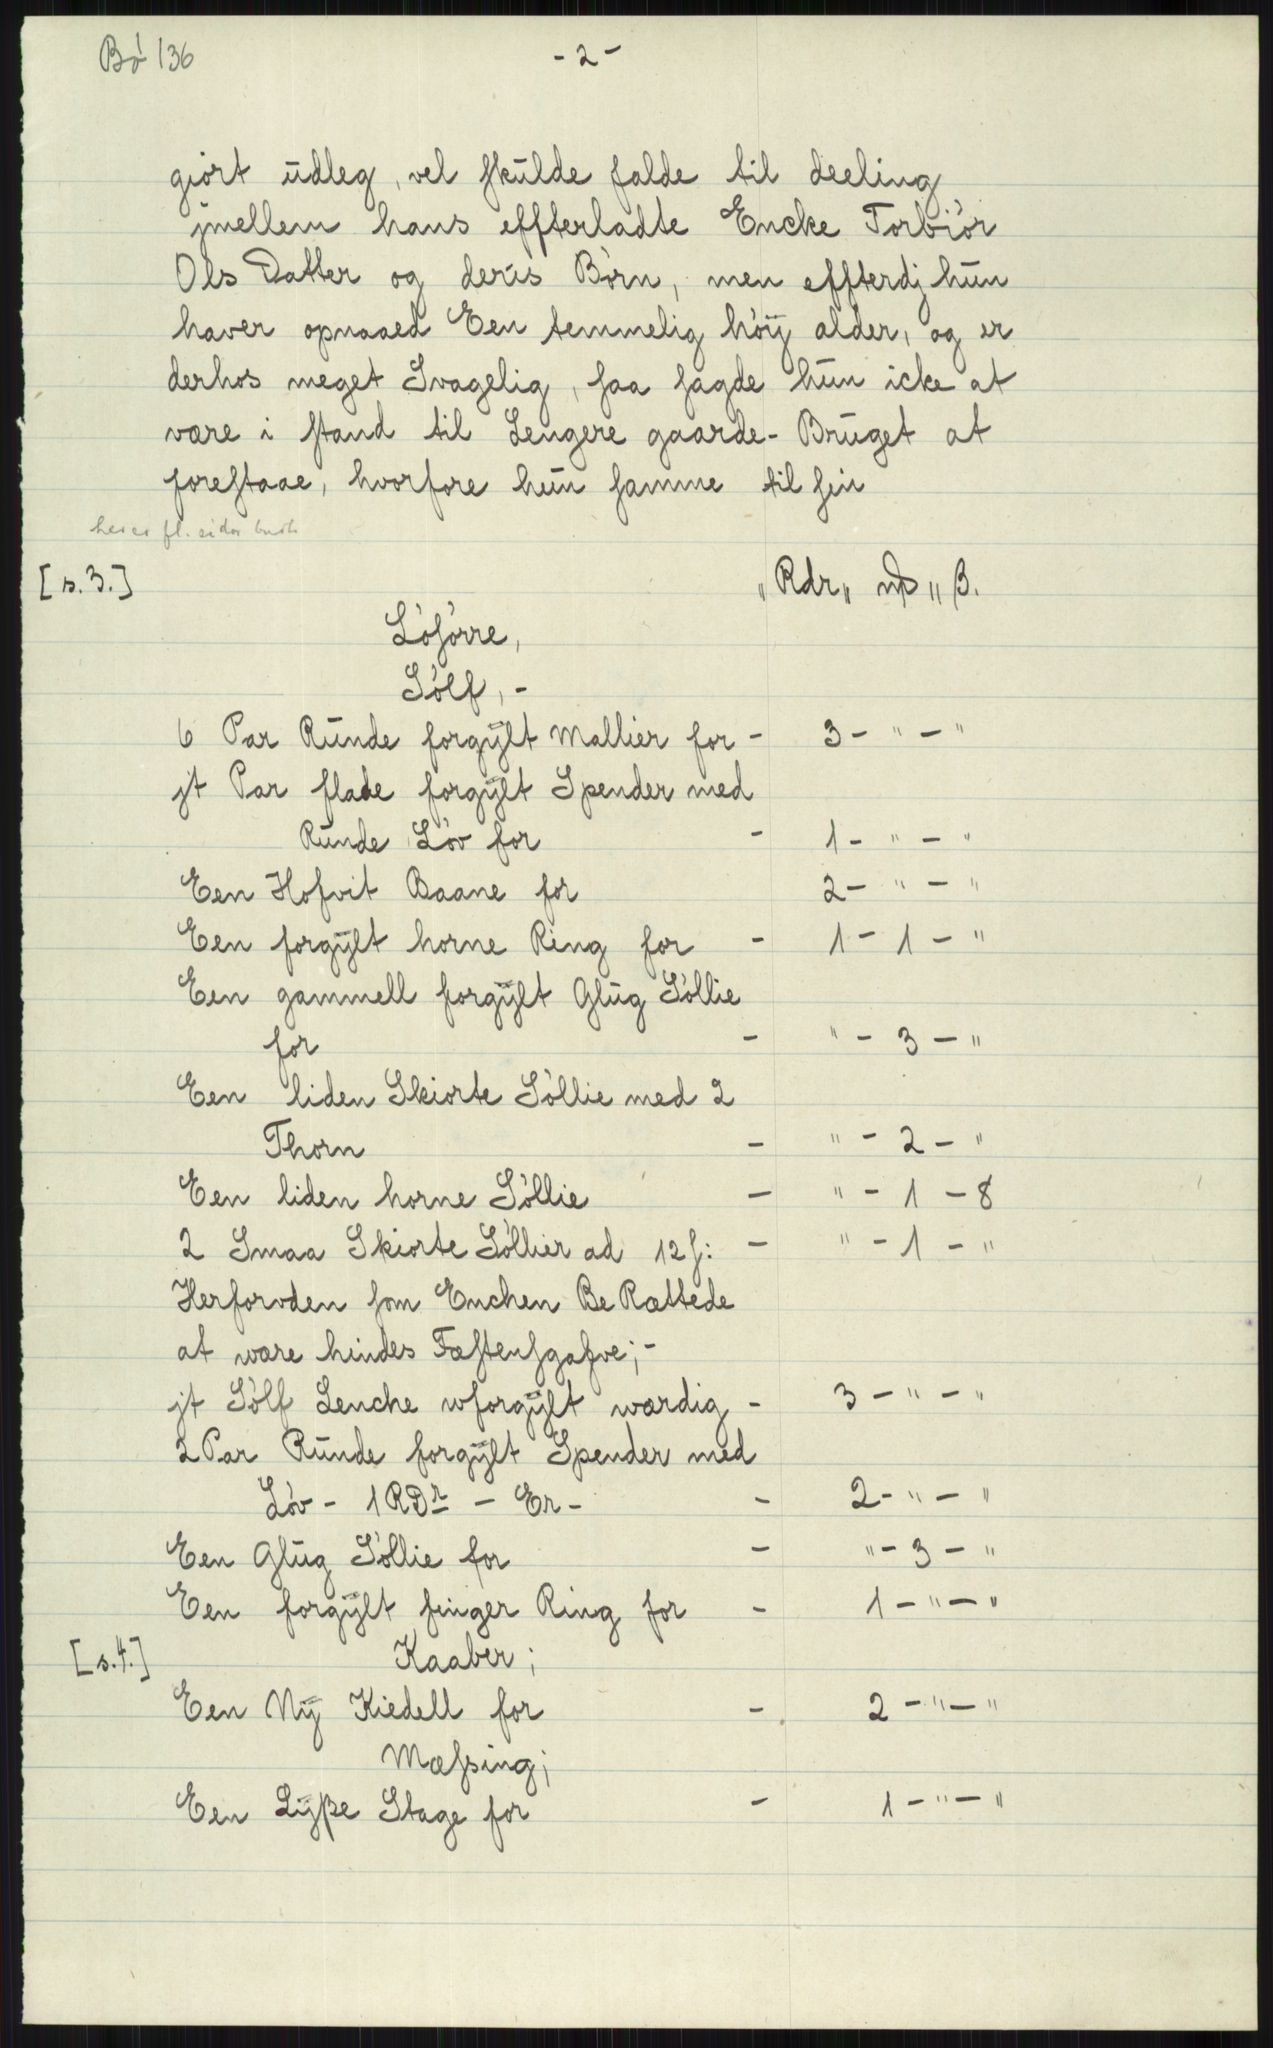 Bö 136
- 2 -
giort udleg, vel skulde falde til deeling
jmellem hans effterladte Encke Torbiör
Ols Datter og deris Börn, men effterdj hun
haver opnaaed Een temmelig höÿ alder, og er
derhos meget Svagelig, saa sagde hun icke at
være i stand til Lengere gaarde-Bruget at
forestaae, hvorfore hun samme til sin
fl. sidor
[s. 3.] " Rdr " mß " ß.
Lösörre,
Sölf, -
6 Par Runde forgÿlt Mallier for - 3 - " - "
jt Par flade forgÿlt Spender med
Runde Löv for - 1 - " - "
Een Hofvit Baane for 2 - " - "
Een forgÿlt horne Ring for - 1 - 1 - "
Een gammell forgÿlt Glug Söllie
for - " - 3 - "
Een liden Skiorte Söllie med 2
Thorn - " - 2 - "
Een liden horne Söllie - " - 1 - 8
2 Smaa Skiorte Söllier ad 12 s: - " - 1 - "
Herforoden som Enchen Be Rættede
at være hindes Fæstensgafve; -
jt Sölf Lencke uforgÿlt værdig - 3 - " - "
2 Par Runde forgÿlt Spender med
Löv - 1 RDr - Er - - 2 - " - "
Een Glug Söllie for - " - 3 - "
Een forgÿlt finger Ring for - 1 - " - "
[s. 4.] Kaaber;
Een Nÿ Kiedell for - 2 - " - "
Mæssing;
Een Lÿße Stage for - 1 - " - "